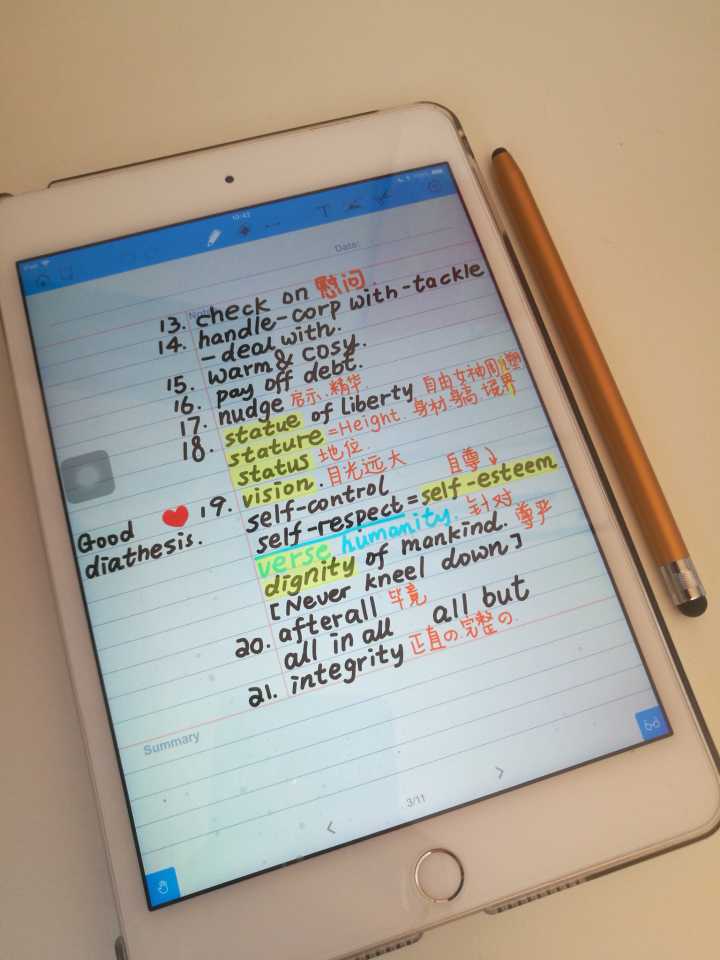 10:42
Date:
Note
13. check on 慰问
14. handle-corp with-tackle
-deal with.
15. warm & cosy.
16. pay off debt.
17. nudge 启示.精华
18. statue of liberty 自由女神
stature =Height. 身材.身高.境界
status 地位.
Good diathesis. ❤ 19. vision. 目光远大
self-control 自尊↓
self-respect = self-esteem
verse humanity. 针对
dignity of mankind. 尊严
[Never kneel down]
20. afterall 毕竟
all in all all but
21. integrity 正直の.完整の.
Summary
3/11